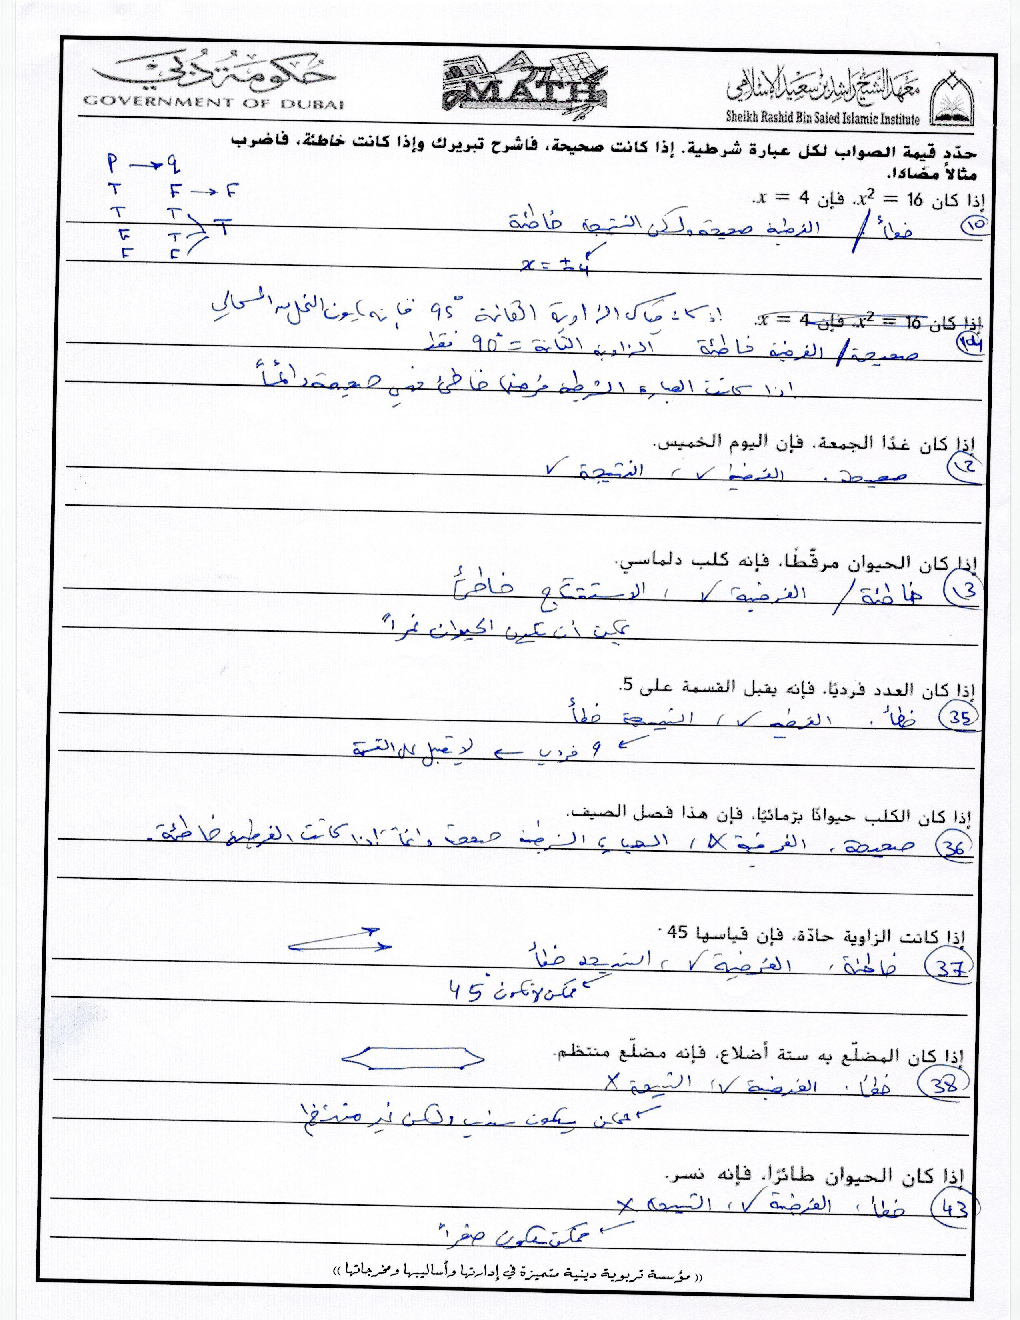 حكومة دبي
GOVERNMENT OF DUBAI
MATH
معهد الشيخ راشد بن سعيد الإسلامي
Sheikh Rashid Bin Saied Islamic Institute
حدّد قيمة الصواب لكل عبارة شرطية. إذا كانت صحيحة، فاشرح تبريرك وإذا كانت خاطئة، فاضرب
مثالاً مضادًا.
P → q
T F → F
T T
F T T
F F
إذا كان x² = 16، فإن x = 4.
10 خطأ / الفرضية صحيحة ولكن النتيجة خاطئة
x = ±4
إذا كان قياس الزاوية القائمة 95° فإنه يكون
إذا كان x² = 16، فإن x = 4.
صحيحة / الفرضية خاطئة الزاوية القائمة = 90° فقط
اذا كانت العبارة الشرطية فرضها خاطئ فهي صحيحة دائماً
إذا كان غدًا الجمعة، فإن اليوم الخميس.
12 صحيحة . الفرضية ✓ ، النتيجة ✓
إذا كان الحيوان مرقّطًا، فإنه كلب دلماسي.
13 خاطئة / الفرضية ✓ ، الاستنتاج خاطئ
يمكن أن يكون الحيوان نمراً
إذا كان العدد فرديًا، فإنه يقبل القسمة على 5.
35 خطأ . الفرضية ✓ ، النتيجة خطأ
9 فردي ← لا تقبل القسمة
إذا كان الكلب حيوانًا برّمائيًا، فإن هذا فصل الصيف.
36 صحيحة ، الفرضية X ، العبارة الشرطية صحيحة دائماً إذا كانت الفرضية خاطئة.
إذا كانت الزاوية حادّة، فإن قياسها 45°
37 خاطئة ، الفرضية ✓ ، النتيجة خطأ
ممكن لا تكون 45°
إذا كان المضلّع به ستة أضلاع، فإنه مضلّع منتظم.
38 خطأ . الفرضية ✓ ، النتيجة X
ممكن يكون سداسي ولكن غير منتظم
إذا كان الحيوان طائرًا، فإنه نسر.
43 خطأ ، الفرضية ✓ ، النتيجة X
ممكن يكون صقراً
(( مؤسسة تربوية دينية متميزة في إدارتها وأساليبها ومخرجاتها ))